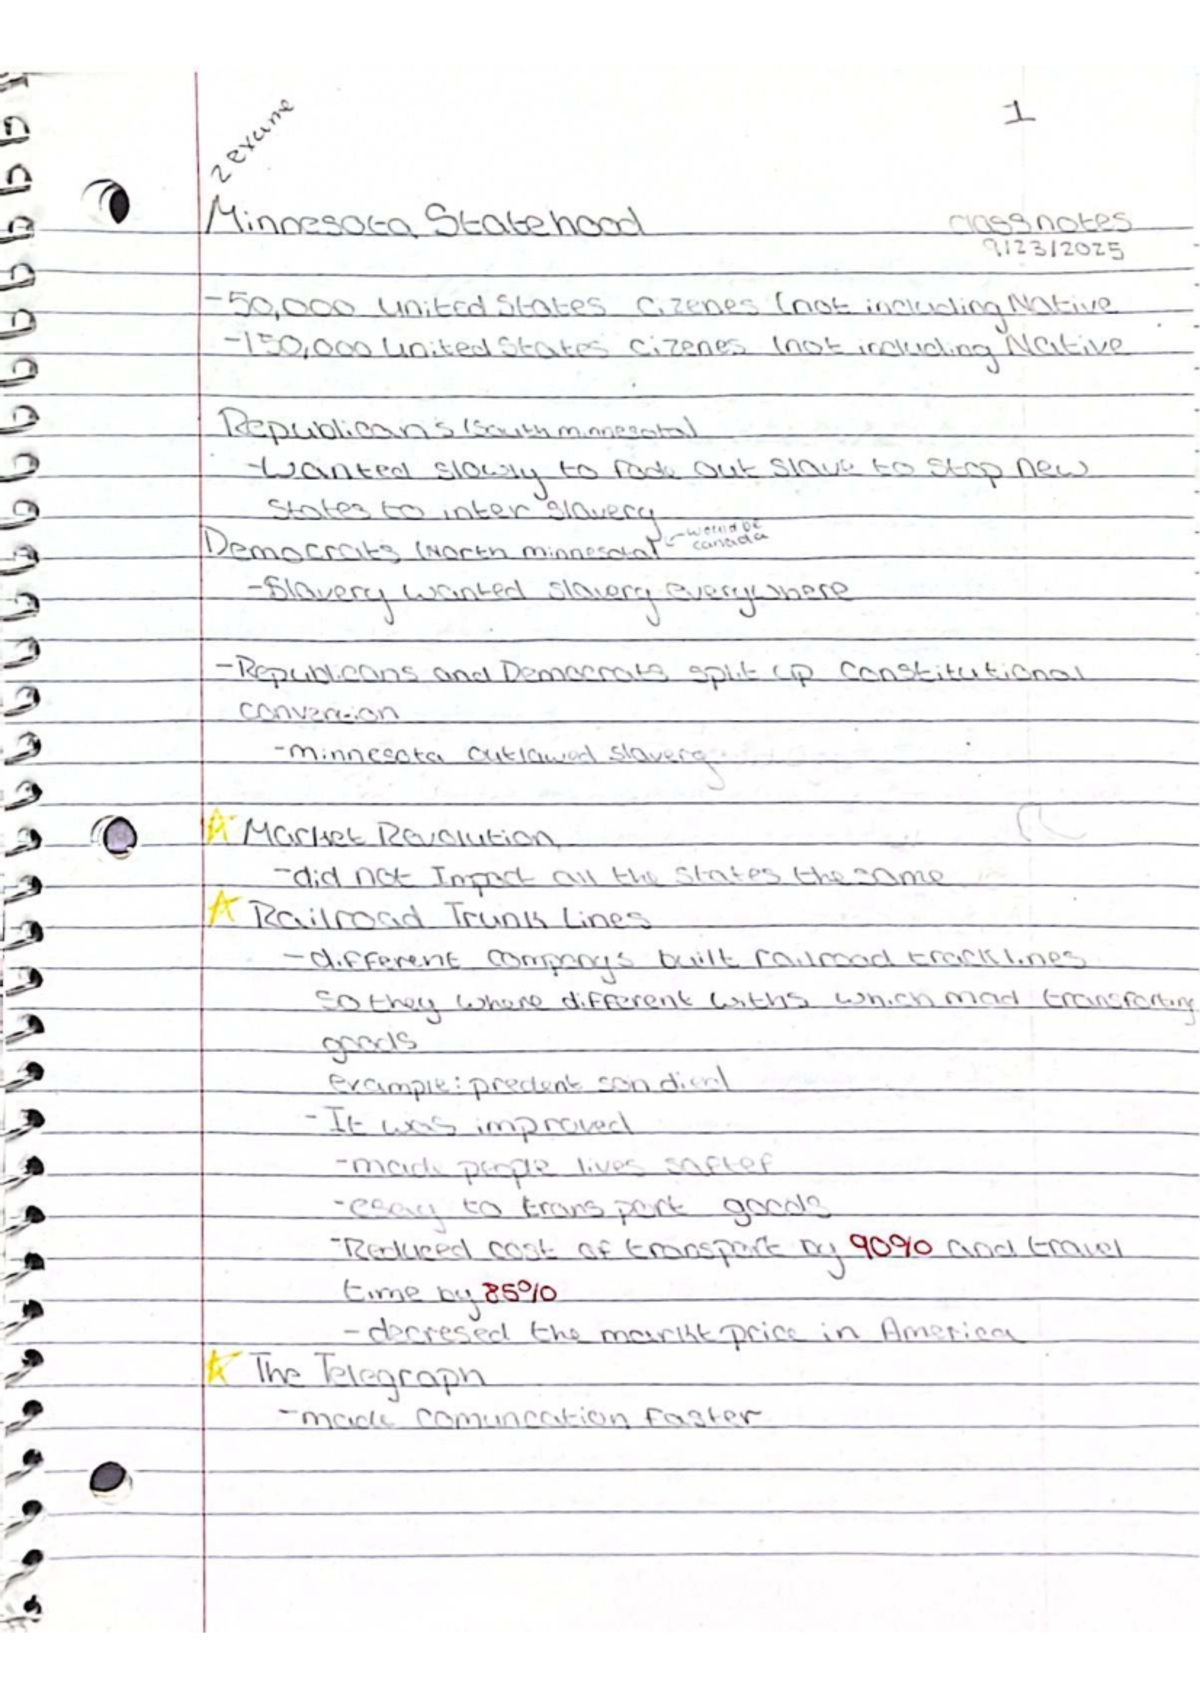 1
2 exame
Minnesota Statehood
classnotes
9/23/2025
-50,000 United States cizenes (not including Native
-150,000 United States cizenes (not including Native
Republicans (South minnesota)
-Wanted slowly to fade out slave to stop new
states to inter slavery
Democrats (North minnesota) -would be
canada
-Slavery wanted slavery everywhere
-Republicans and Democrats split up constitutional
conversion
-minnesota outlawed slavery
Market Revolution
-did not Impact all the states the same
Railroad Trunk Lines
-different companys built railroad track lines
so they where different withs which mad transforting
goods
example: predent son died
-It was improved
-made people lives safter
-esay to transport goods
-Reduced cost of transport by 90% and travel
time by 85%
-decresed the markt price in America
The Telegraph
-made comuncation faster